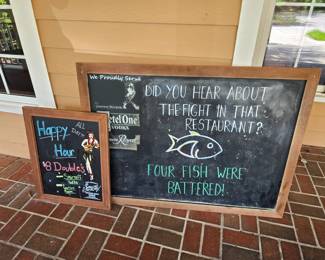 We Proudly Serve
DID YOU HEAR ABOUT
THE FIGHT IN THAT
RESTAURANT?
FOUR FISH WERE
BATTERED!
etel One
VODKA
ALL
DAY
Happy
Hour
$8 Doubles